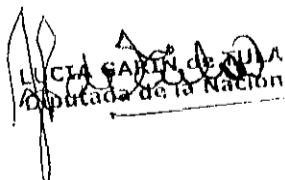 LUCIA GARIN de TULA
Diputada de la Nación